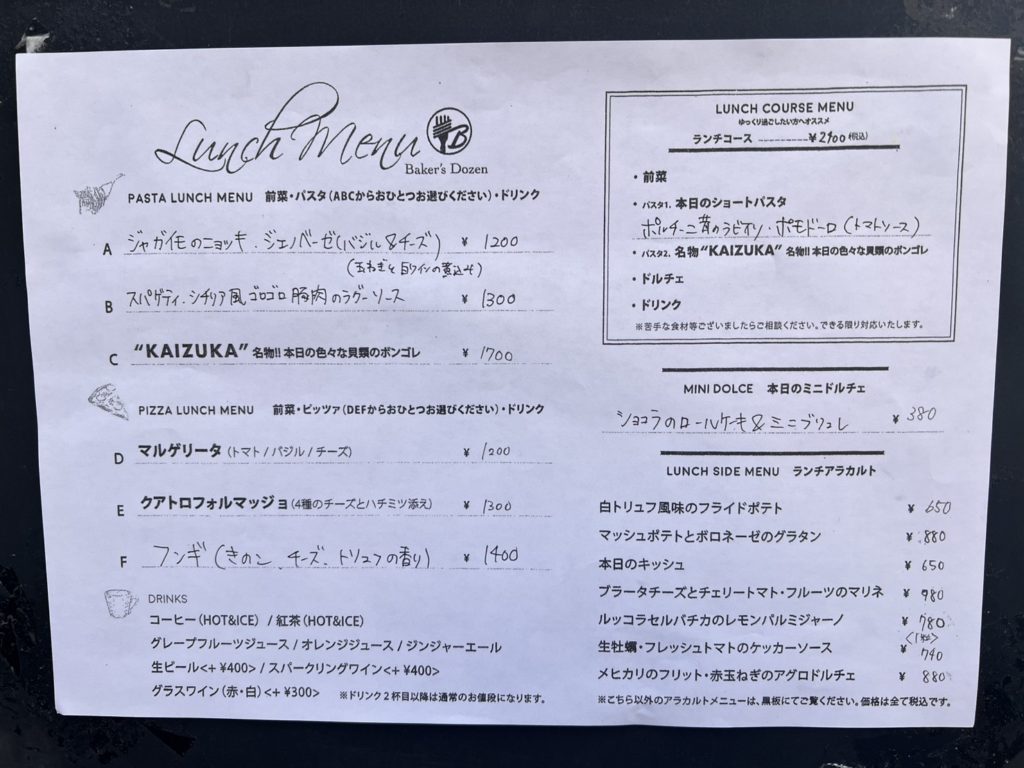 Lunch Menu
B
Baker's Dozen
PASTA LUNCH MENU 前菜・パスタ（ABCからおひとつお選びください）・ドリンク
A ジャガイモのニョッキ・ジェノベーゼ（バジル&チーズ） ¥ 1200
（玉ねぎと白ワインの煮込み）
B スパゲティ・シチリア風ゴロゴロ豚肉のラグーソース ¥ 1300
C “KAIZUKA” 名物!! 本日の色々な貝類のボンゴレ ¥ 1700
PIZZA LUNCH MENU 前菜・ピッツァ（DEFからおひとつお選びください）・ドリンク
D マルゲリータ（トマト / バジル / チーズ） ¥ 1200
E クアトロフォルマッジョ（4種のチーズとハチミツ添え） ¥ 1300
F フンギ（きのこ、チーズ、トリュフの香り） ¥ 1400
DRINKS
コーヒー（HOT&ICE） / 紅茶（HOT&ICE）
グレープフルーツジュース / オレンジジュース / ジンジャーエール
生ビール<+ ¥400> / スパークリングワイン<+ ¥400>
グラスワイン（赤・白）<+ ¥300> ※ドリンク2杯目以降は通常のお値段になります。
LUNCH COURSE MENU
ゆっくり過ごしたい方へオススメ
ランチコース ---------- ¥2900（税込）
・前菜
・パスタ1. 本日のショートパスタ
ポルチーニ茸のラビオリ・ポモドーロ（トマトソース）
・パスタ2. 名物“KAIZUKA” 名物!! 本日の色々な貝類のボンゴレ
・ドルチェ
・ドリンク
※苦手な食材等ございましたらご相談ください。できる限り対応いたします。
MINI DOLCE 本日のミニドルチェ
ショコラのロールケーキ&ミニブリュレ ¥ 380
LUNCH SIDE MENU ランチアラカルト
白トリュフ風味のフライドポテト ¥ 650
マッシュポテトとボロネーゼのグラタン ¥ 880
本日のキッシュ ¥ 650
ブラータチーズとチェリートマト・フルーツのマリネ ¥ 980
ルッコラセルバチカのレモンパルミジャーノ ¥ 780
生牡蠣・フレッシュトマトのケッカーソース ¥ 740
メヒカリのフリット・赤玉ねぎのアグロドルチェ ¥ 880
※こちら以外のアラカルトメニューは、黒板にてご覧ください。価格は全て税込です。